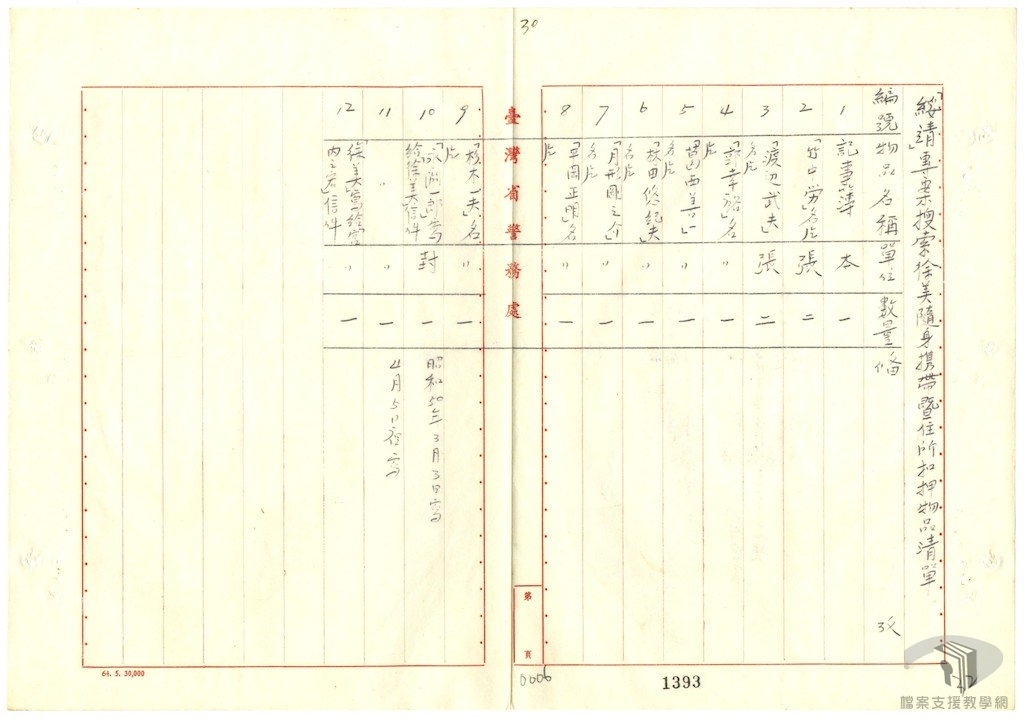 30
「綏靖」專案搜索徐美隨身携帶暨住所扣押物品清單
編號 物品名稱 單位 數量 備
1 記事簿 本 一
2 「竹中労」名片 張 二
3 「渡辺武夫」名片 張 二
4 「郭幸裕」名片 〃 一
5 西善 名片 〃 一
6 「牧田悠紀夫」名片 〃 一
7 「月形剛之介」名片 〃 一
8 「平岡正明」名片 〃 一
臺灣省警務處
第 頁
9 一夫」名片 〃 一
10 一郎」寫給徐美信件 封 一 昭和50年3月3日寫
11 〃 〃 一 4月5日 寫
12 「徐美」寫給 信件 〃 一
64. 5. 30,000
0006
1393
檔案支援教學網